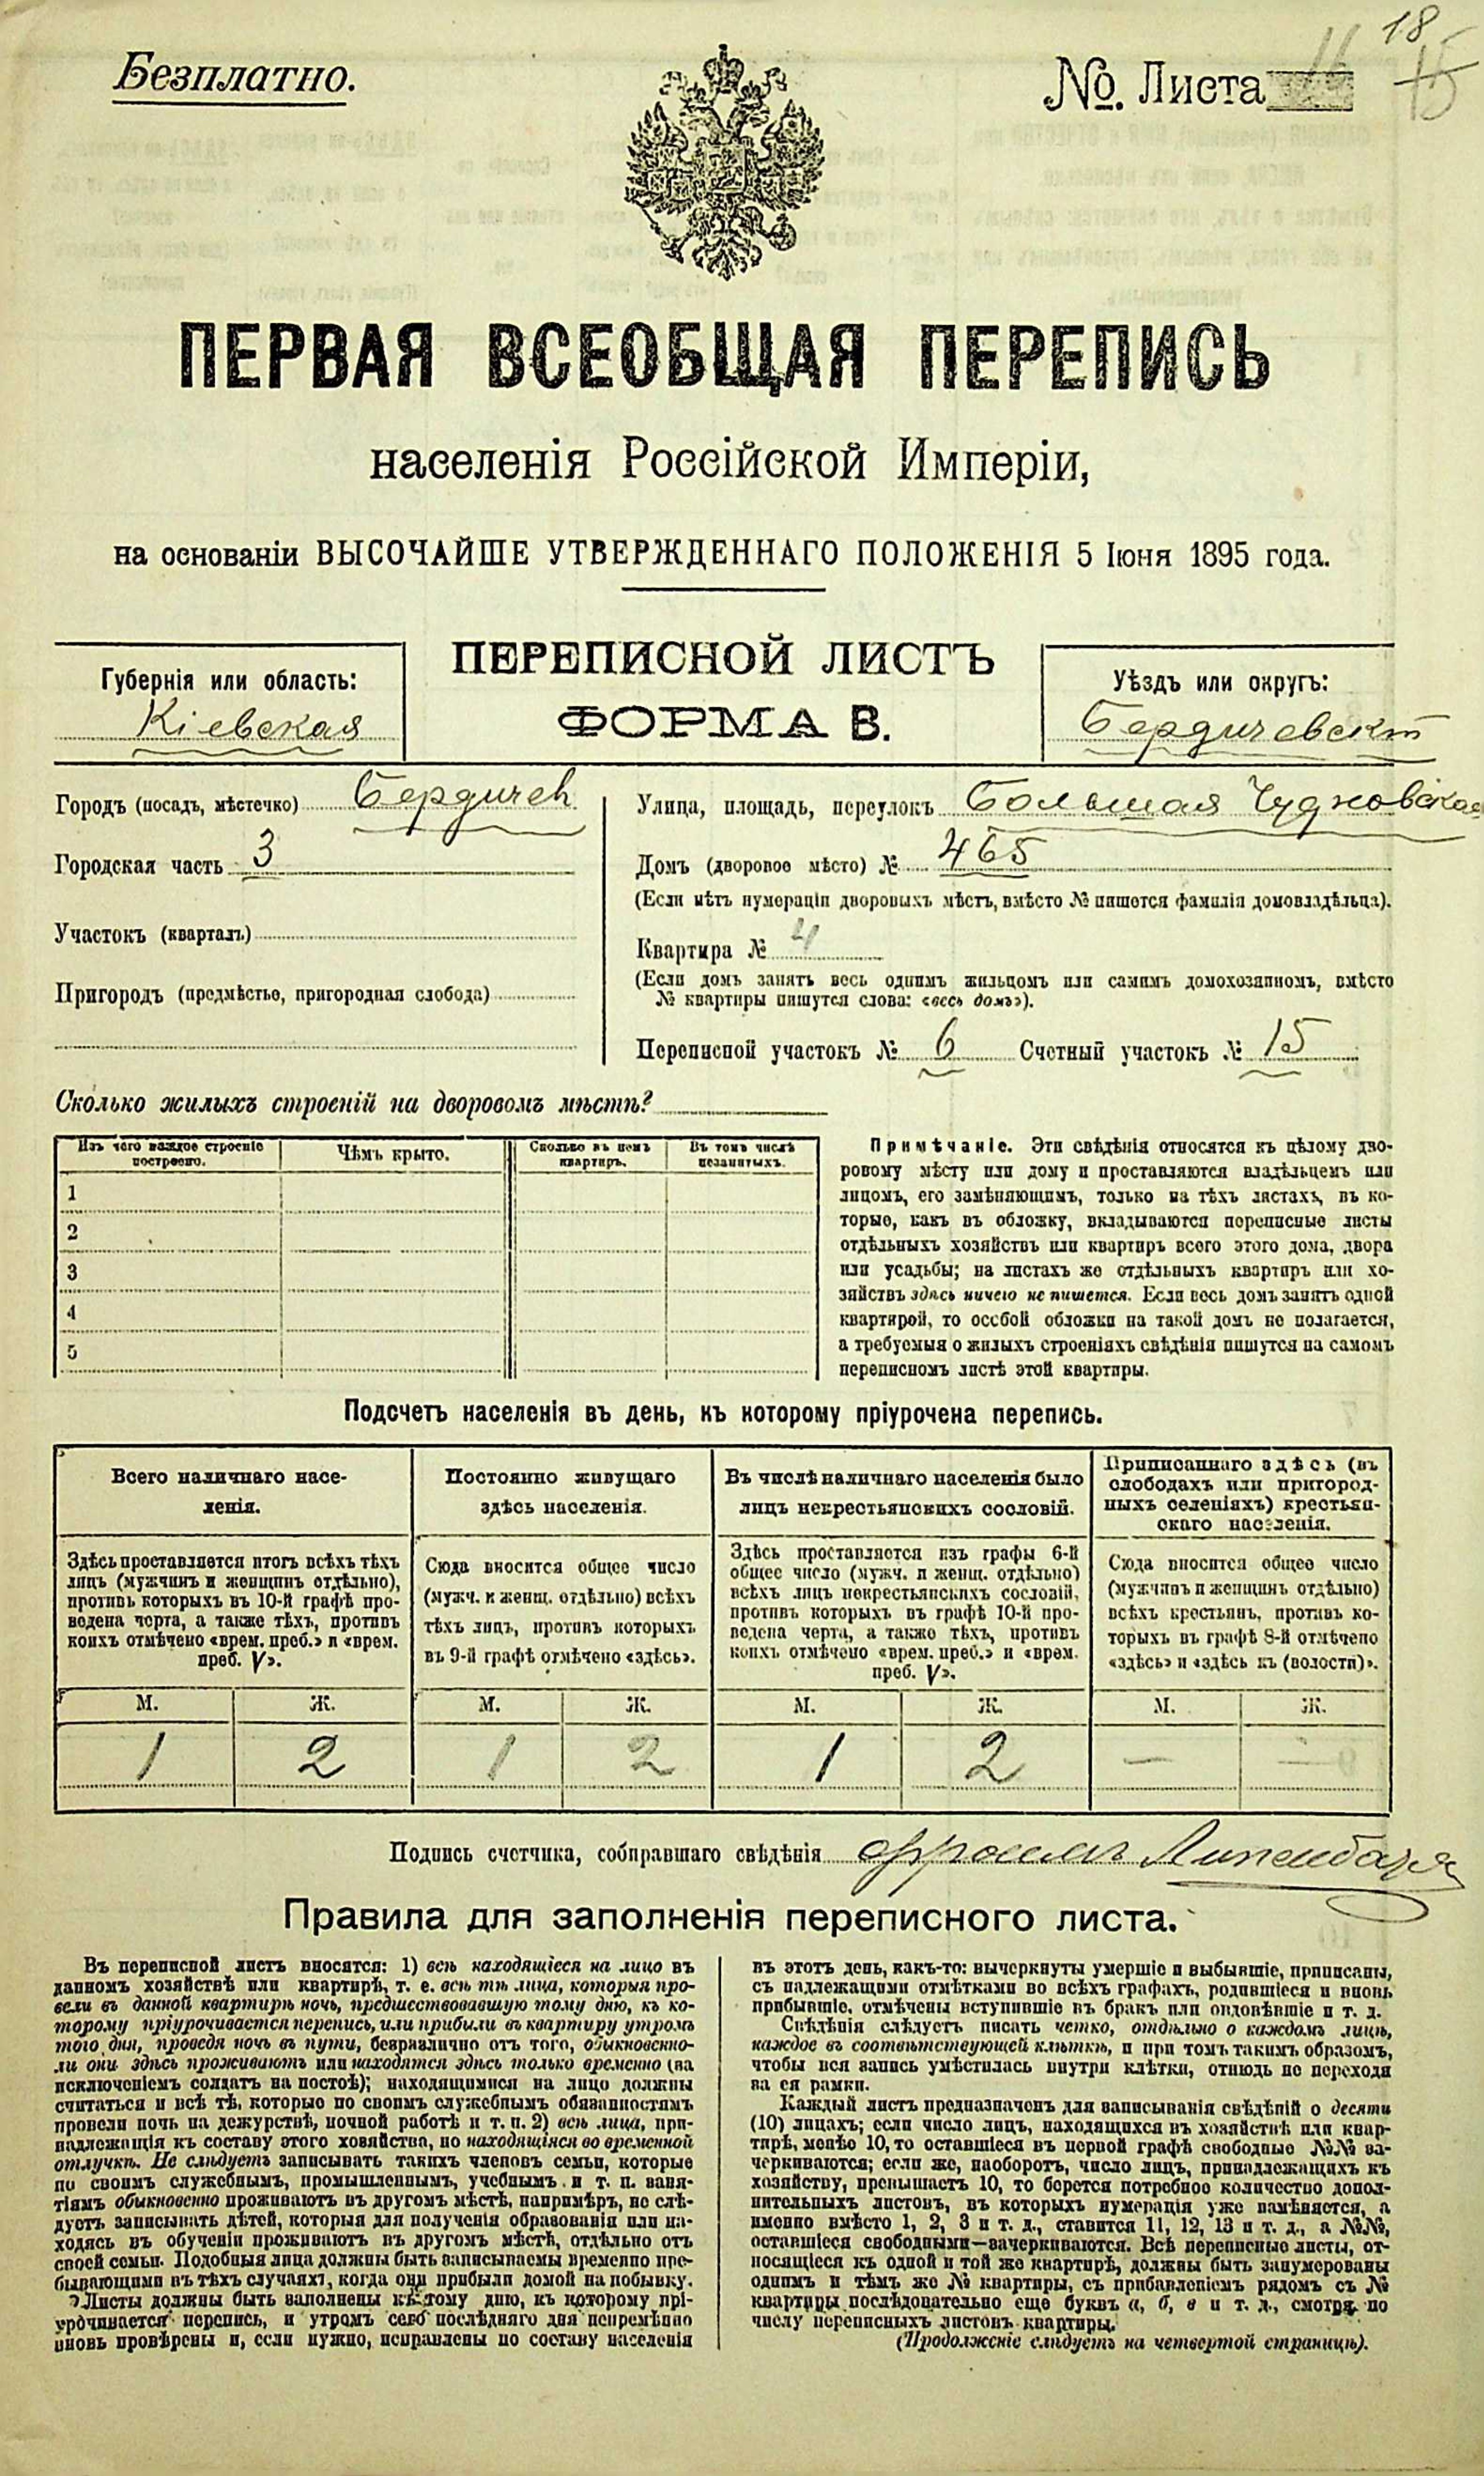 18
Безплатно.
№. Листа
15
ПЕРВАЯ ВСЕОБЩАЯ ПЕРЕПИСЬ
населенія Россійской Имперіи,
на основаніи ВЫСОЧАЙШЕ УТВЕРЖДЕННАГО ПОЛОЖЕНІЯ 5 Іюня 1895 года.
ПЕРЕПИСНОЙ ЛИСТЪ
ФОРМА В.
Губернія или область:
Кіевская
Уѣздъ или округъ:
Бердичевскт
Городъ (посадъ, мѣстечко) Бердичеh
Городская часть 3
Участокъ (кварталъ)
Пригородъ (предмѣстье, пригородная слобода)
Улица, площадь, переулокъ Большая Чудновская
Домъ (дворовое мѣсто) № 465
(Если нѣтъ нумераціи дворовыхъ мѣстъ, вмѣсто № пишется фамилія домовладѣльца).
Квартира № 4
(Если домъ занятъ весь однимъ жильцомъ или самимъ домохозяиномъ, вмѣсто
№ квартиры пишутся слова: «весь домъ»).
Переписной участокъ № 6 Счетный участокъ № 15
Сколько жилыхъ строеній на дворовомъ мѣстѣ?
Изъ чего каждое строеніе
построено.
Чѣмъ крыто.
Сколько въ немъ
квартиръ.
Въ томъ числѣ
незанятыхъ.
1
2
3
4
5
Примѣчаніе. Эти свѣдѣнія относятся къ цѣлому дво-
ровому мѣсту или дому и проставляются владѣльцемъ или
лицомъ, его замѣняющимъ, только на тѣхъ листахъ, въ ко-
торые, какъ въ обложку, вкладываются переписные листы
отдѣльныхъ хозяйствъ или квартиръ всего этого дома, двора
или усадьбы; на листахъ же отдѣльныхъ квартиръ или хо-
зяйствъ здѣсь ничего не пишется. Если весь домъ занятъ одной
квартирой, то особой обложки на такой домъ не полагается,
а требуемыя о жилыхъ строеніяхъ свѣдѣнія пишутся на самомъ
переписномъ листѣ этой квартиры.
Подсчетъ населенія въ день, къ которому пріурочена перепись.
Всего наличнаго насе-
ленія.
Постоянно живущаго
здѣсь населенія.
Въ числѣ наличнаго населенія было
лицъ некрестьянскихъ сословій.
Приписаннаго здѣсь (въ
слободахъ или пригород-
ныхъ селеніяхъ) крестьян-
скаго населенія.
Здѣсь проставляется итогъ всѣхъ тѣхъ
лицъ (мужчинъ и женщинъ отдѣльно),
противъ которыхъ въ 10-й графѣ про-
ведена черта, а также тѣхъ, противъ
коихъ отмѣчено «врем. преб.» и «врем.
преб. V».
Сюда вносится общее число
(мужч. и женщ. отдѣльно) всѣхъ
тѣхъ лицъ, противъ которыхъ
въ 9-й графѣ отмѣчено «здѣсь».
Здѣсь проставляется изъ графы 6-й
общее число (мужч. и женщ. отдѣльно)
всѣхъ лицъ некрестьянскихъ сословій,
противъ которыхъ въ графѣ 10-й про-
ведена черта, а также тѣхъ, противъ
коихъ отмѣчено «врем. преб.» и «врем.
преб. V».
Сюда вносится общее число
(мужчинъ и женщинъ отдѣльно)
всѣхъ крестьянъ, противъ ко-
торыхъ въ графѣ 8-й отмѣчено
«здѣсь» и «здѣсь къ (волости)».
М. Ж. М. Ж. М. Ж. М. Ж.
1 2 1 2 1 2 — —
Подпись счетчика, собиравшаго свѣдѣнія
Правила для заполненія переписного листа.
Въ переписной листъ вносятся: 1) всѣ находящіеся на лицо въ
данномъ хозяйствѣ или квартирѣ, т. е. всѣ тѣ лица, которыя про-
вели въ данной квартирѣ ночь, предшествовавшую тому дню, къ ко-
торому пріурочивается перепись, или прибыли въ квартиру утромъ
того дня, проведя ночь въ пути, безразлично отъ того, обыкновенно-
ли они здѣсь проживаютъ или находятся здѣсь только временно (за
исключеніемъ солдатъ на постоѣ); находящимися на лицо должны
считаться и всѣ тѣ, которые по своимъ служебнымъ обязанностямъ
провели ночь на дежурствѣ, ночной работѣ и т. п. 2) всѣ лица, при-
надлежащія къ составу этого хозяйства, но находящіяся во временной
отлучкѣ. Не слѣдуетъ записывать такихъ членовъ семьи, которые
по своимъ служебнымъ, промышленнымъ, учебнымъ и т. п. заня-
тіямъ обыкновенно проживаютъ въ другомъ мѣстѣ, напримѣръ, не слѣ-
дуетъ записывать дѣтей, которыя для полученія образованія или на-
ходясь въ обученіи проживаютъ въ другомъ мѣстѣ, отдѣльно отъ
своей семьи. Подобныя лица должны быть записываемы временно пре-
бывающими въ тѣхъ случаяхъ, когда они прибыли домой на побывку.
Листы должны быть заполнены къ тому дню, къ которому прі-
урочивается перепись, и утромъ сего послѣдняго дня непремѣнно
вновь провѣрены и, если нужно, исправлены по составу населенія
въ этотъ день, какъ-то: вычеркнуты умершіе и выбывшіе, приписаны,
съ надлежащими отмѣтками во всѣхъ графахъ, родившіеся и вновь
прибывшіе, отмѣчены вступившіе въ бракъ или овдовѣвшіе и т. д.
Свѣдѣнія слѣдуетъ писать четко, отдѣльно о каждомъ лицѣ,
каждое въ соотвѣтствующей клѣткѣ, и при томъ такимъ образомъ,
чтобы вся запись умѣстилась внутри клѣтки, отнюдь не переходя
за ея рамки.
Каждый листъ предназначенъ для записыванія свѣдѣній о десяти
(10) лицахъ; если число лицъ, находящихся въ хозяйствѣ или квар-
тирѣ, менѣе 10, то оставшіеся въ первой графѣ свободные №№ за-
черкиваются; если же, наоборотъ, число лицъ, принадлежащихъ къ
хозяйству, превышаетъ 10, то берется потребное количество допол-
нительныхъ листовъ, въ которыхъ нумерація уже измѣняется, а
именно вмѣсто 1, 2, 3 и т. д., ставится 11, 12, 13 и т. д., а №№,
оставшіеся свободными—зачеркиваются. Всѣ переписные листы, от-
носящіеся къ одной и той же квартирѣ, должны быть занумерованы
однимъ и тѣмъ же № квартиры, съ прибавленіемъ рядомъ съ №
квартиры послѣдовательно еще буквъ а, б, в и т. д., смотря по
числу переписныхъ листовъ квартиры.
(Продолженіе слѣдуетъ на четвертой страницѣ).